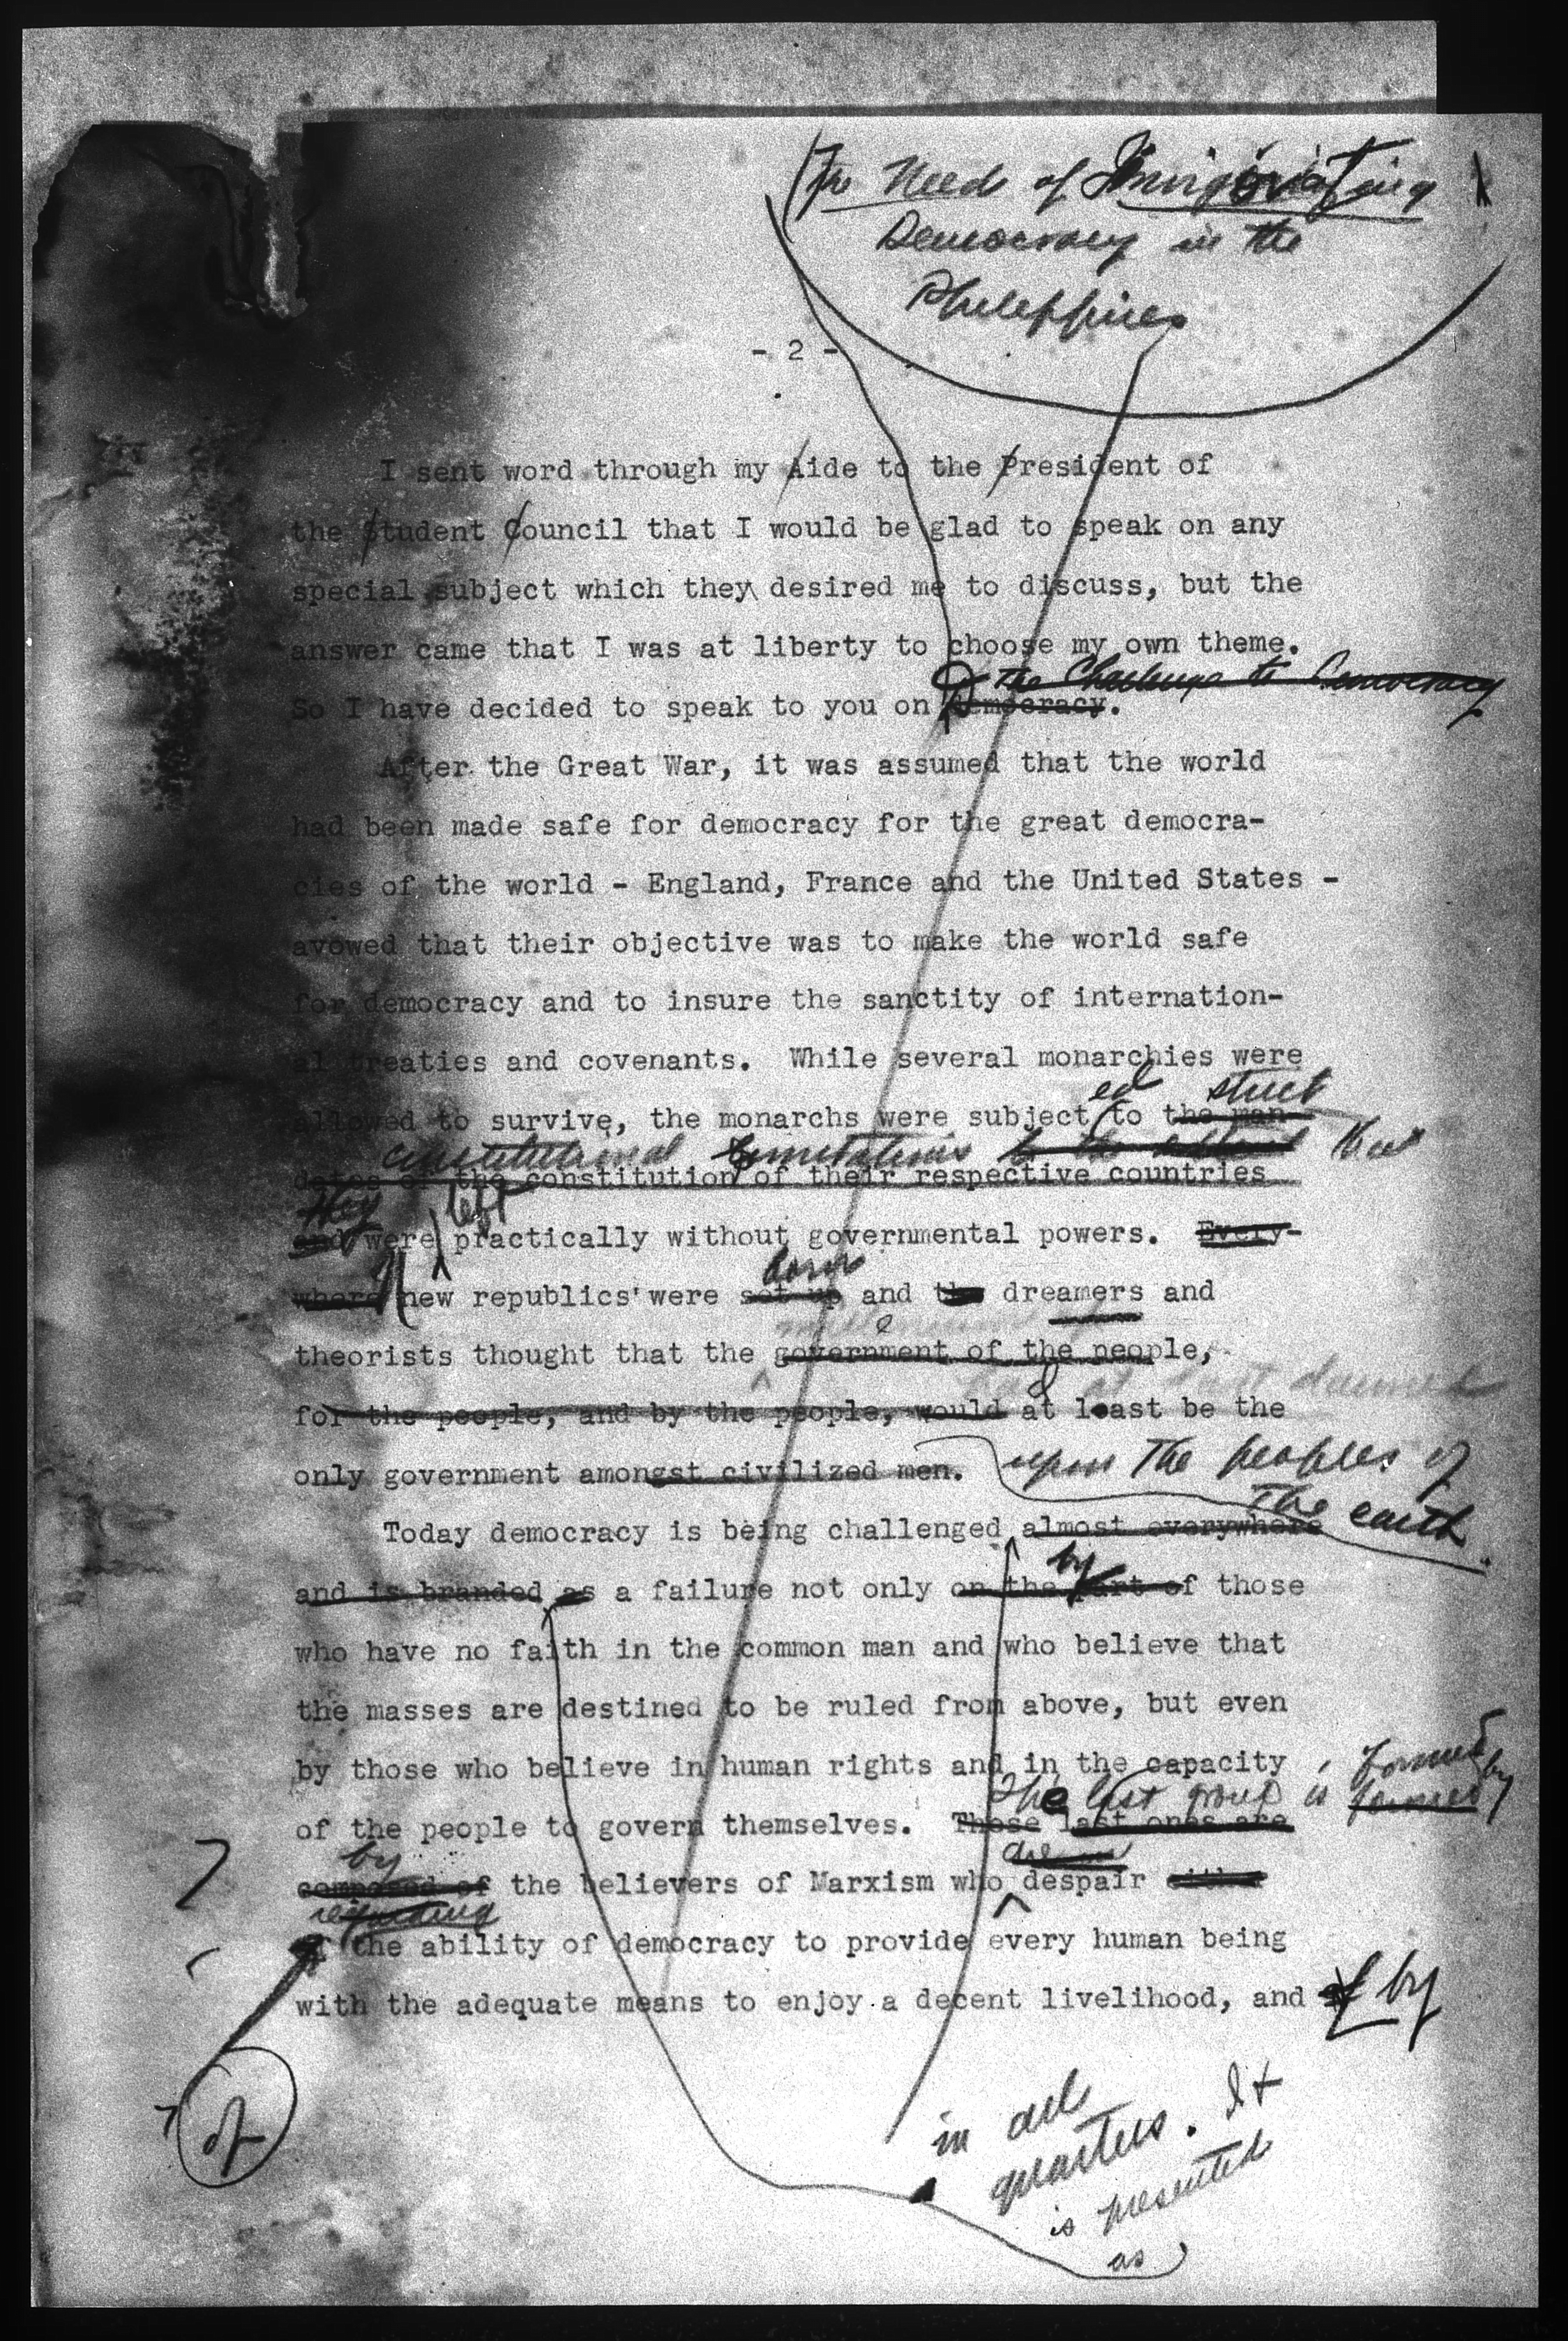 The Need of Invigorating
Democracy in the
Philippines
- 2 -
I sent word through my Aide to the President of
the Student Council that I would be glad to speak on any
special subject which they desired me to discuss, but the
answer came that I was at liberty to choose my own theme.
The Challenge to Democracy
So I have decided to speak to you on Democracy.
After the Great War, it was assumed that the world
had been made safe for democracy for the great democra-
cies of the world - England, France and the United States -
avowed that their objective was to make the world safe
for democracy and to insure the sanctity of internation-
al treaties and covenants. While several monarchies were
ed strict
allowed to survive, the monarchs were subject to the man-
constitutional limitations to the
dates of the constitution of their respective countries
They left
and were practically without governmental powers. Every-
born
where new republics were set up and the dreamers and
theorists thought that the government of the people,
had at last dawned
for the people, and by the people, would at least be the
only government amongst civilized men. upon the peoples of
the earth
Today democracy is being challenged almost everywhere
by
and is branded as a failure not only on the part of those
who have no faith in the common man and who believe that
the masses are destined to be ruled from above, but even
by those who believe in human rights and in the capacity
The last group is formed by
of the people to govern themselves. These last ones are
by
composed of the believers of Marxism who despair
regarding
of the ability of democracy to provide every human being
with the adequate means to enjoy a decent livelihood, and by
of
in all
quarters. It
is presented
as